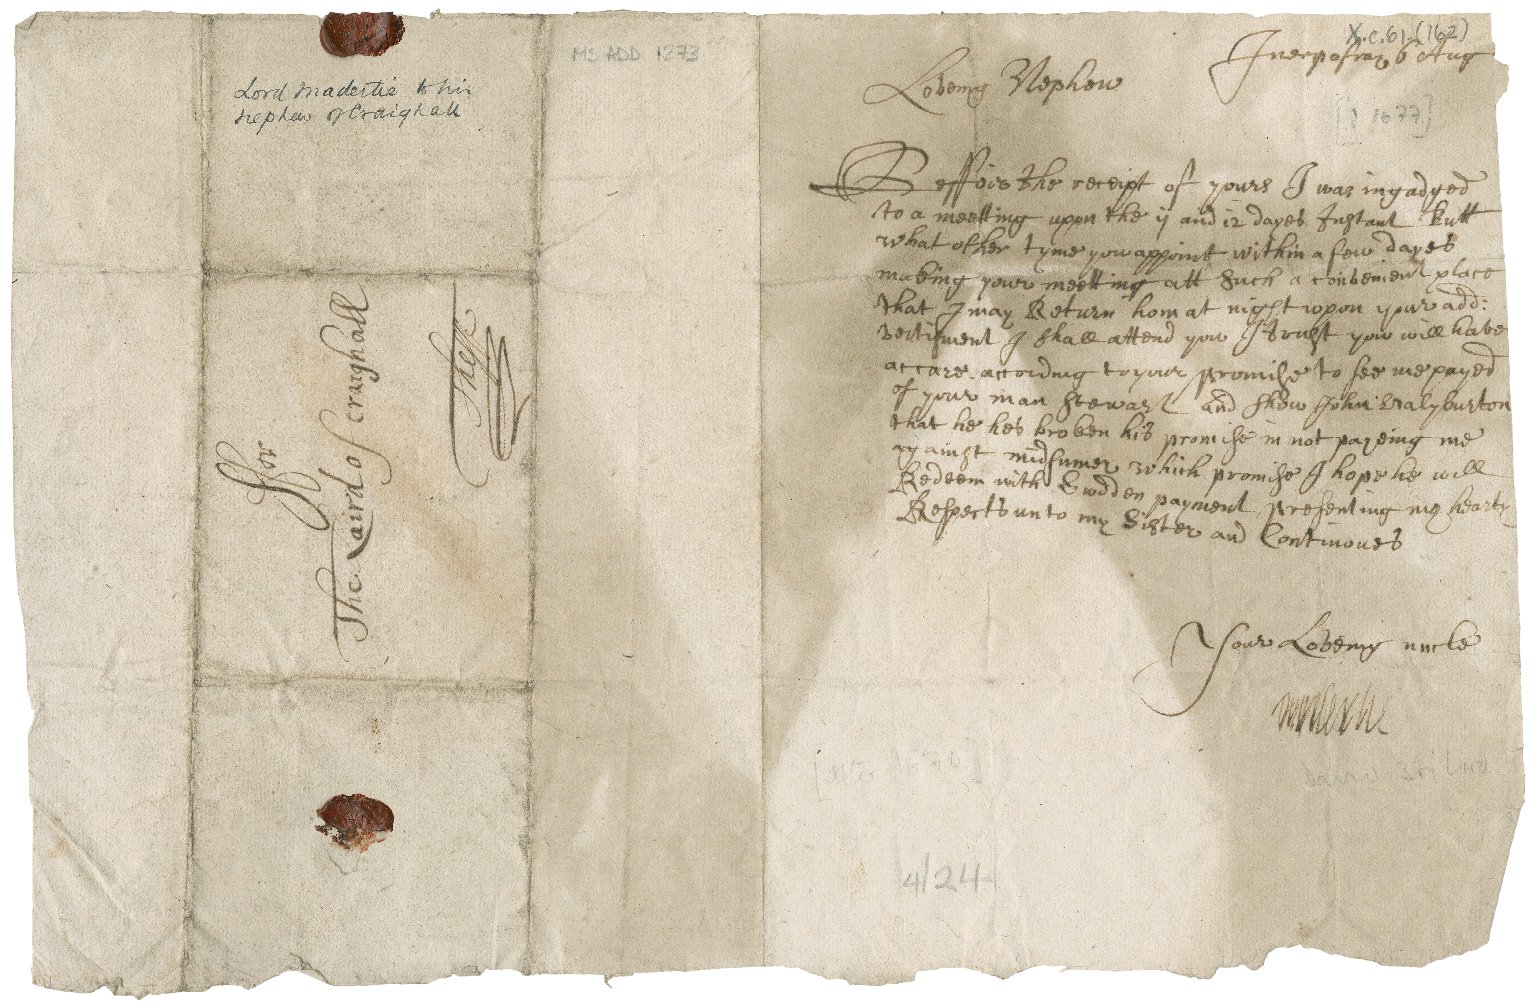 Lord Madertie to his
nephew of Craighall
Ms ADD 1273
ffor
The Laird of Craighall
Thesse
X.c.61 (162)
Inerpafray 6 Aug
[? 1677]
Loveing Nephew
Beffoir the receipt of yours I was ingadged
to a meetting upon the ij and i2 dayes Instant Butt
what other tyme yow appoint within a few dayes
making your meetting att Such a convenient place
that I may Return hom at night upon your add:
vertisment I shall attend yow I trust yow will have
ac care according to your promise to see me payed
of your man Stewart and show John Halyburton
that he hes broken his promise in not payeing me
against midsumer which promise I hope he will
Redeem with Sudden payment presenting my hearty
Respects unto my Sister and Continoues
Your Loveing uncle
Maderthe
David 3rd Lord
4/24